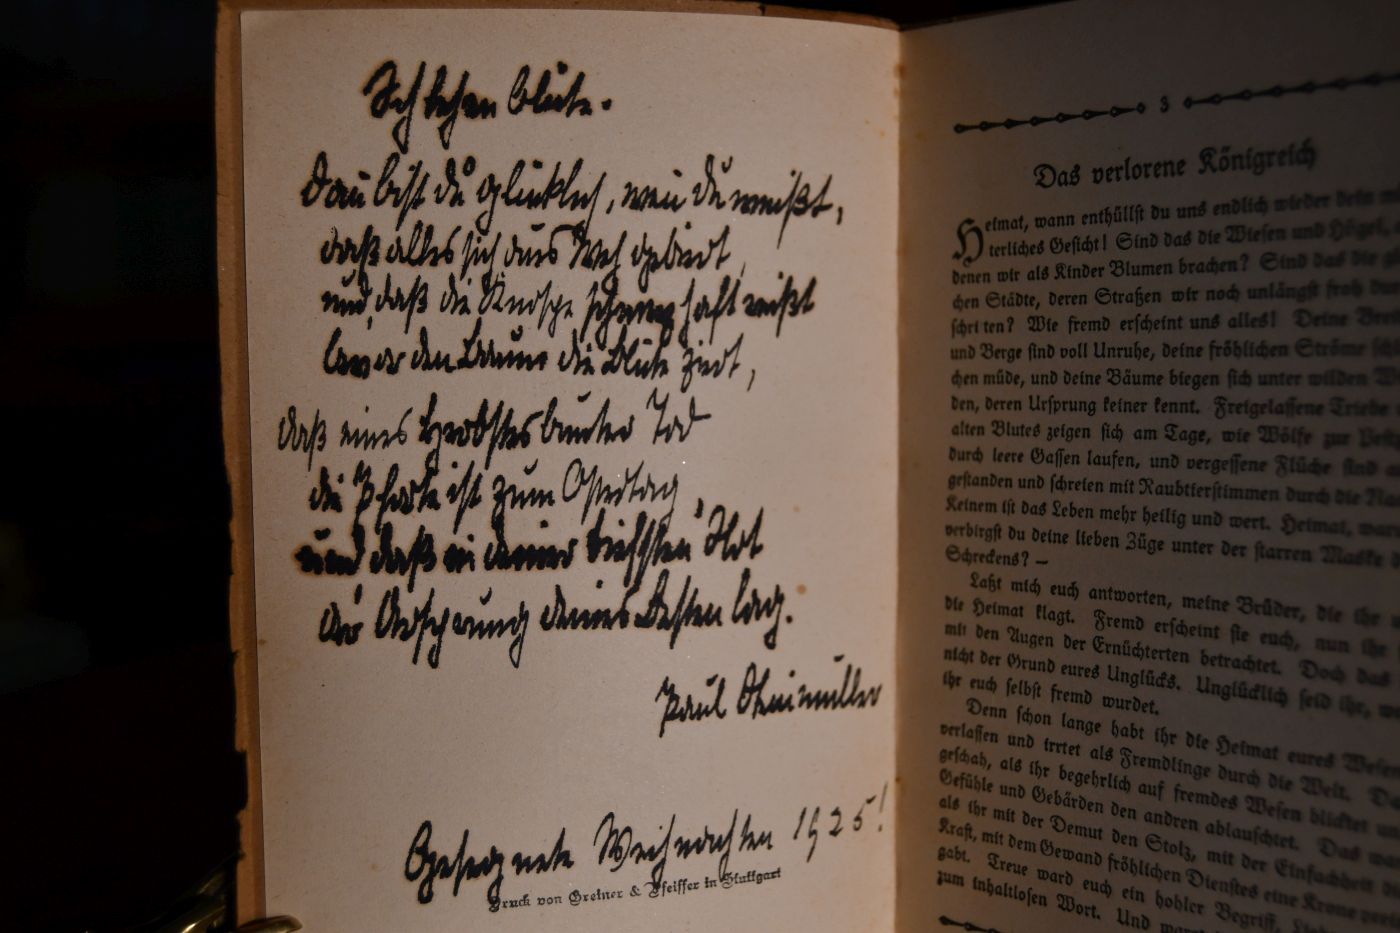 Schlehenblüte.
Dann bist du glücklich, wenn du weißt,
daß alles sich aus Weh gebiert,
und daß die Knospe schmerzhaft reißt
bevor den Baum die Blüte ziert,
daß eines Herbstes bunter Tod
die Pforte ist zum Ostertag
und daß in deiner tiefsten Not
der Ursprung deines Besten lag.
Paul Steinmüller
Gesegnete Weihnachten 1925!
Druck von Greiner & Pfeiffer in Stuttgart
3
Das verlorene Königreich
Heimat, wann enthüllst du uns endlich wieder dein
terliches Gesicht! Sind das die Wiesen und Hügel,
denen wir als Kinder Blumen brachen? Sind das die
chen Städte, deren Straßen wir noch unlängst froh
schritten? Wie fremd erscheint uns alles! Deine
und Berge sind voll Unruhe, deine fröhlichen Ströme
chen müde, und deine Bäume biegen sich unter wilden
den, deren Ursprung keiner kennt. Freigelassene Triebe
alten Blutes zeigen sich am Tage, wie Wölfe zur
durch leere Gassen laufen, und vergessene Flüche sind
gestanden und schreien mit Raubtierstimmen durch die
Keinem ist das Leben mehr heilig und wert. Heimat,
verbirgst du deine lieben Züge unter der starren Maske
Schreckens? —
Laßt mich euch antworten, meine Brüder, die ihr
die Heimat klagt. Fremd erscheint sie euch, nun ihr
mit den Augen der Ernüchterten betrachtet. Doch das
nicht der Grund eures Unglücks. Unglücklich seid ihr,
ihr euch selbst fremd wurdet.
Denn schon lange habt ihr die Heimat eures Wesens
verlassen und irrtet als Fremdlinge durch die Welt.
geschah, als ihr begehrlich auf fremdes Wesen blicktet
Gefühle und Gebärden den andren ablauschtet. Das
als ihr mit der Demut den Stolz, mit der Einfachheit
Kraft, mit dem Gewand fröhlichen Dienstes eine Krone
gabt. Treue ward euch ein hohler Begriff,
zum inhaltlosen Wort. Und